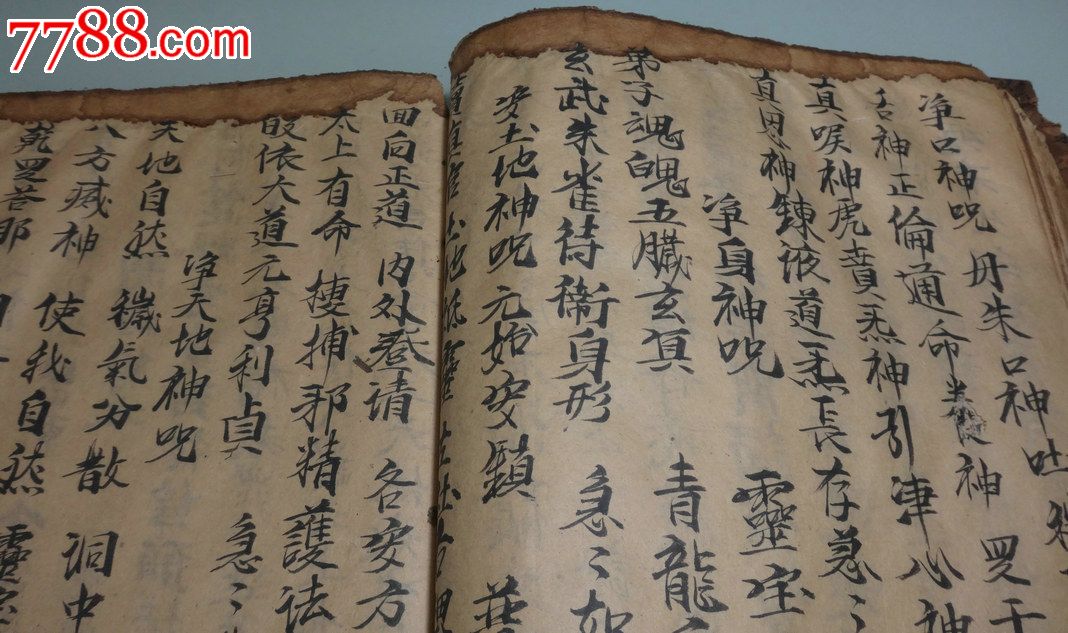 7788.com
净口神咒 丹朱口神吐
舌神正倫通命養神 罗千
真喉神虎賁炁神引津 心神
真思神鍊液道炁長存 急〻
净身神咒 靈宝
弟子魂魄五臓玄冥 青龍
玄武朱雀待衞身形 急〻如
安土地神咒 元始安鎮
回向正道 内外 請 各安方
太上有命 搜捕邪精 護法
皈依大道元亨利貞 急〻
净天地神咒
天地自然 穢氣分散 洞中
八方威神 使我自然 靈宝